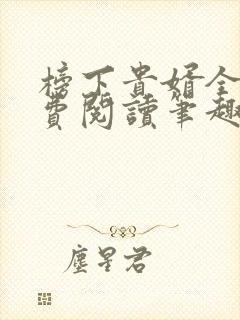 榜下貴婿全
費閱讀筆趣
塵星君